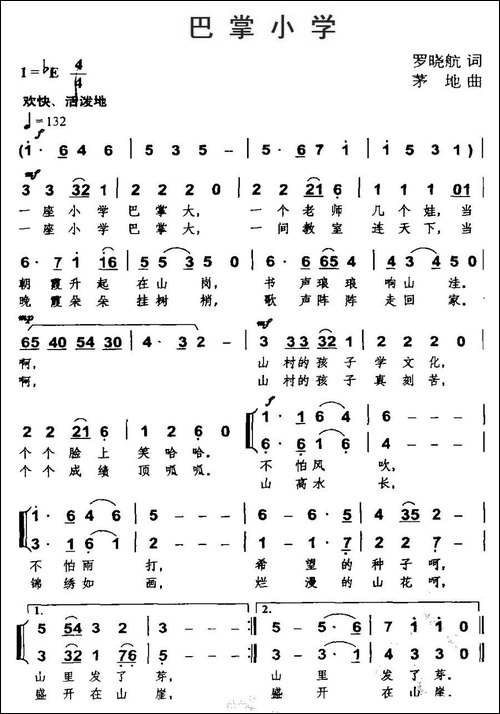 巴掌小学
1=♭E 4/4
罗晓航 词
茅 地 曲
欢快、活泼地
♩=132
f
(1· 6 4 6 | 5 3 5 - | 5· 6 7 1 | 1 5 3 1)
mf
3 3 32 1 | 2 2 2 0 | 2 2 21 6 | 1 1 1 01
一座小学巴掌大, 一个老师几个娃,当
一座小学巴掌大, 一间教室连天下,当
6· 7 1 16 | 5 5 35 0 | 6· 6 65 4 | 4 3 45 0
朝霞升起在山岗, 书声琅琅响山洼。
晚霞朵朵挂树梢, 歌声阵阵走回家。
mp mf
65 40 54 30 | 4· 3 2 - | 3 33 32 1 | 2 2 2 0
啊, 山村的孩子学文化,
啊, 山村的孩子真刻苦,
f
2 2 21 6 | 1 2 6 0 | 1· 1 6 4 | 6 - - -
6· 6 1 6 | 4 - - -
个个脸上笑哈哈。 不怕风吹,
个个成绩顶呱呱。 山高水长,
1· 6 4 6 | 5 - - - | 6 - 6· 5 | 4 35 2 -
3· 1 6 1 | 2 - - - | 2 - 1· 7 | 2 2 7 -
不怕雨打, 希望的种子呵,
锦绣如画, 烂漫的山花呵,
1. 2.
5 54 3 2 | 5 - - - :| 5 - 5· 6 | 7 1 - -
3 32 1 76 | 5 - - - :| 3 - 3· 1 | 4 3 - -
山里发了芽, 山里发了芽。
盛开在山崖, 盛开在山崖。